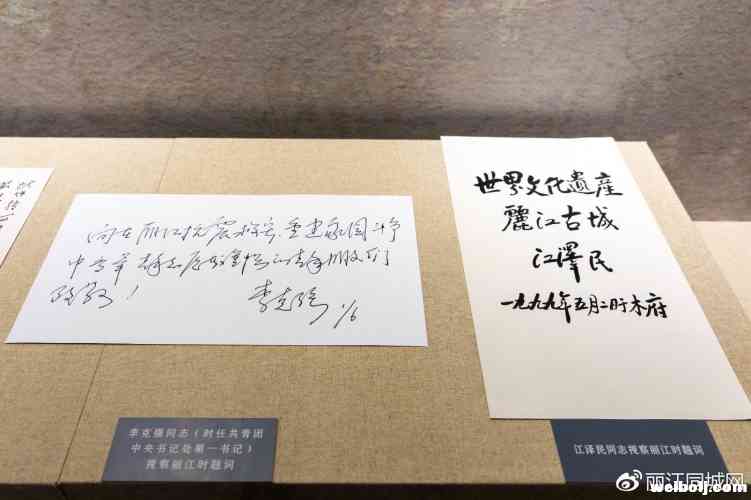 向在丽江抗震救灾重建家园斗争
中
致敬！
李克强 1/6
李克强同志（时任共青团
中央书记处第一书记）
视察丽江时题词
世界文化遺産
麗江古城
江澤民
一九九九年五月二日于木府
江泽民同志视察丽江时题词
@丽江同城网
weibolj.com